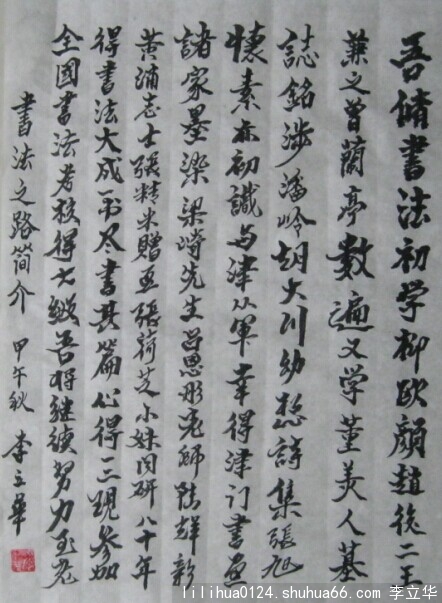 吾脩書法初学柳欧顔趙後二王
兼之曽蘭亭数遍又学董美人墓
誌銘涉潘岭胡大川幼想詩集張旭
懐素亦初識与津从軍幸得津门書画
諸家墨染梁崎先生吕思彤老師陆辉新
黄浦志士張精米贈互張荷芝小妹同研八十年
得書法大成不尽書其篇心得一二現参加
全國書法考核得七級吾将继续努力至老
書法之路簡介 甲午秋 李立華
lilihua0124.shuhua66.com 李立华